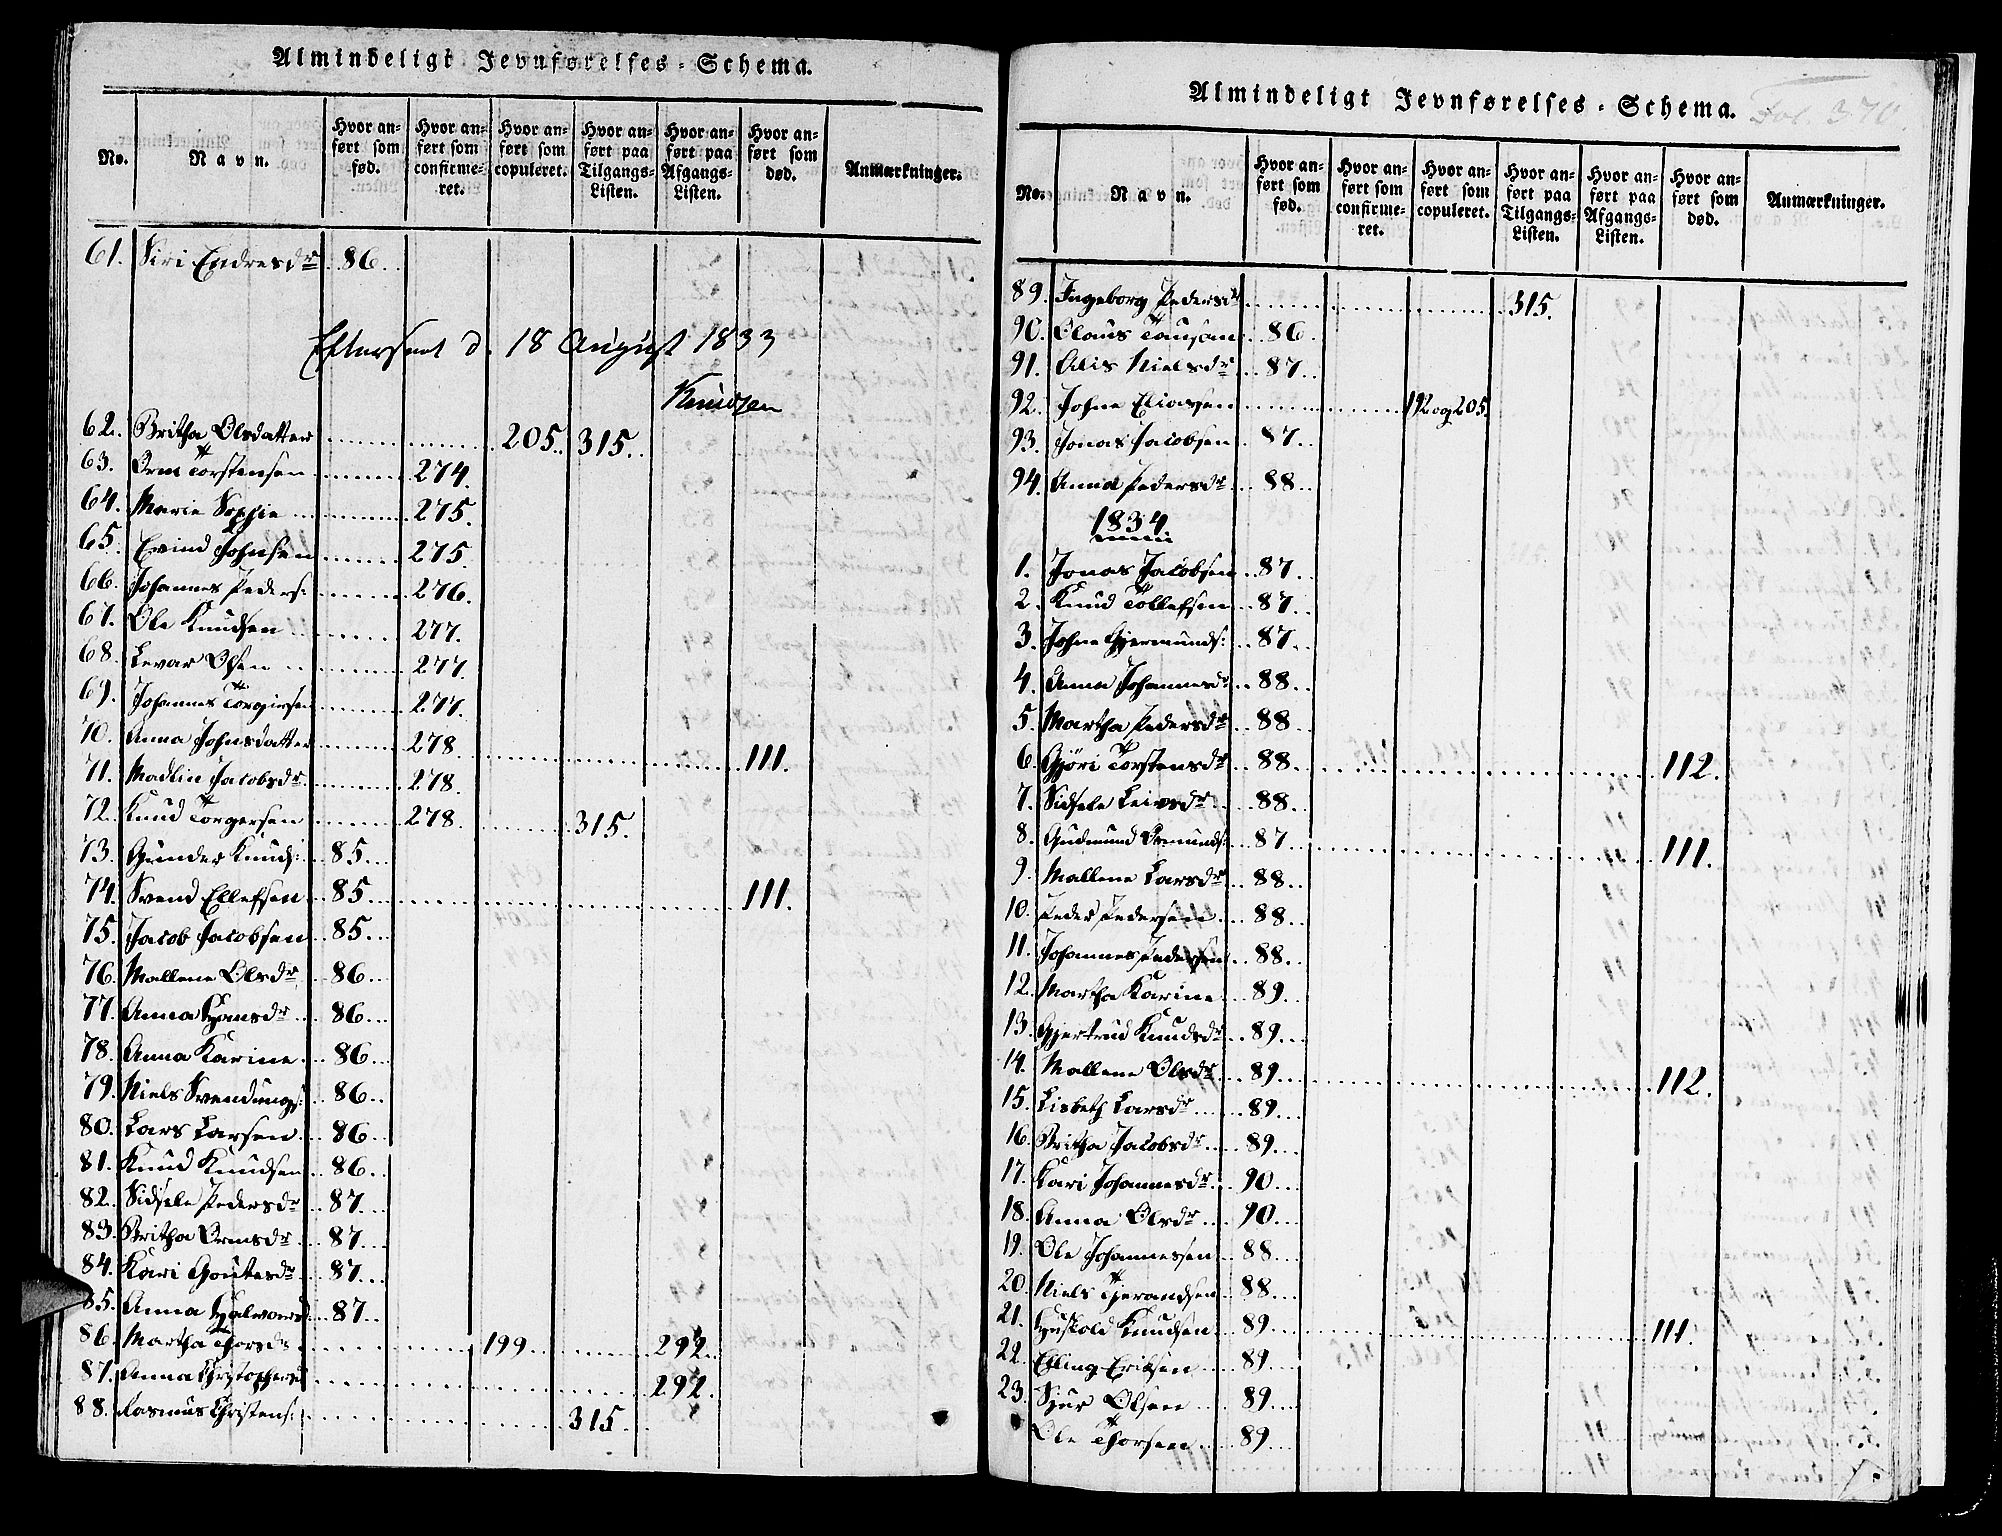 Almindeligt Jevnførelses-Schema.
No. Navn. Hvor anført som fød. Hvor anført som confirmeret. Hvor anført som copuleret. Hvor anført paa Tilgangs-Listen. Hvor anført paa Afgangs-Listen. Hvor anført som død. Anmærkninger.
61. Siri Endresdr 86.
Efterseet d. 18 August 1833
Knudsen
62. Britha Olsdatter 205. 315.
63. Orm Torstensen 274.
64. Marie Sophie 275.
65. Evind Johnsen 275.
66. Johannes Peders: 276.
67. Ole Knudsen 277.
68. Levar Olsen 277.
69. Johannes Torgirsen 277.
70. Anna Johnsdatter 278. 111.
71. Madlin Jacobsdr 278.
72. Knud Torgersen 278. 315.
73. Gunder Knuds: 85.
74. Svend Ellefsen 85. 111.
75. Jacob Jacobsen 85.
76. Mallene Olsdr 86.
77. Anna Hansdr 86.
78. Anna Karine 86.
79. Niels Svendungs: 86.
80. Lars Larsen 86.
81. Knud Knudsen 86.
82. Sidsele Pedersdr 87.
83. Britha Ormsdr 87.
84. Kari Goutesdr 87.
85. Anna Halvorsd 87.
86. Martha Thorsdr 199. 292.
87. Anna Christophersd 292.
88. Rasmus Christens: 315.
Almindeligt Jevnførelses-Schema.
Fol. 370.
No. Navn. Hvor anført som fød. Hvor anført som confirmeret. Hvor anført som copuleret. Hvor anført paa Tilgangs-Listen. Hvor anført paa Afgangs-Listen. Hvor anført som død. Anmærkninger.
89. Ingeborg Pedersdr 315.
90. Olaus Tausan 86.
91. Alis Nielsdr 87.
92. Johne Eliassen 192 og 205.
93. Jonas Jacobsen 87.
94. Anna Pedersdr 88.
1834.
1. Jonas Jacobsen 87.
2. Knud Tollefsen 87.
3. Johne Gjermunds: 87.
4. Anna Johannesdr 88.
5. Martha Pedersdr 88.
6. Gjøri Torstensdr 88. 112.
7. Sidsele Leivsdr 88.
8. Gudmund Omunds: 87. 111.
9. Mallene Larsdr 88.
10. Peder Pedersen 88.
11. Johannes Pedersen 88.
12. Martha Karine 89.
13. Gjertrud Knudsdr 89.
14. Mallene Olsdr 89. 112.
15. Lisbeth Larsdr 89.
16. Britha Jacobsdr 89.
17. Kari Johannesdr 90.
18. Anna Olsdr 90.
19. Ole Johannessen 88.
20. Niels Tjerandsen 88.
21. Huskold Knudsen 89. 111.
22. Elling Eriksen 89.
23. Sjur Olsen 89.
Ole Thorsen 89.